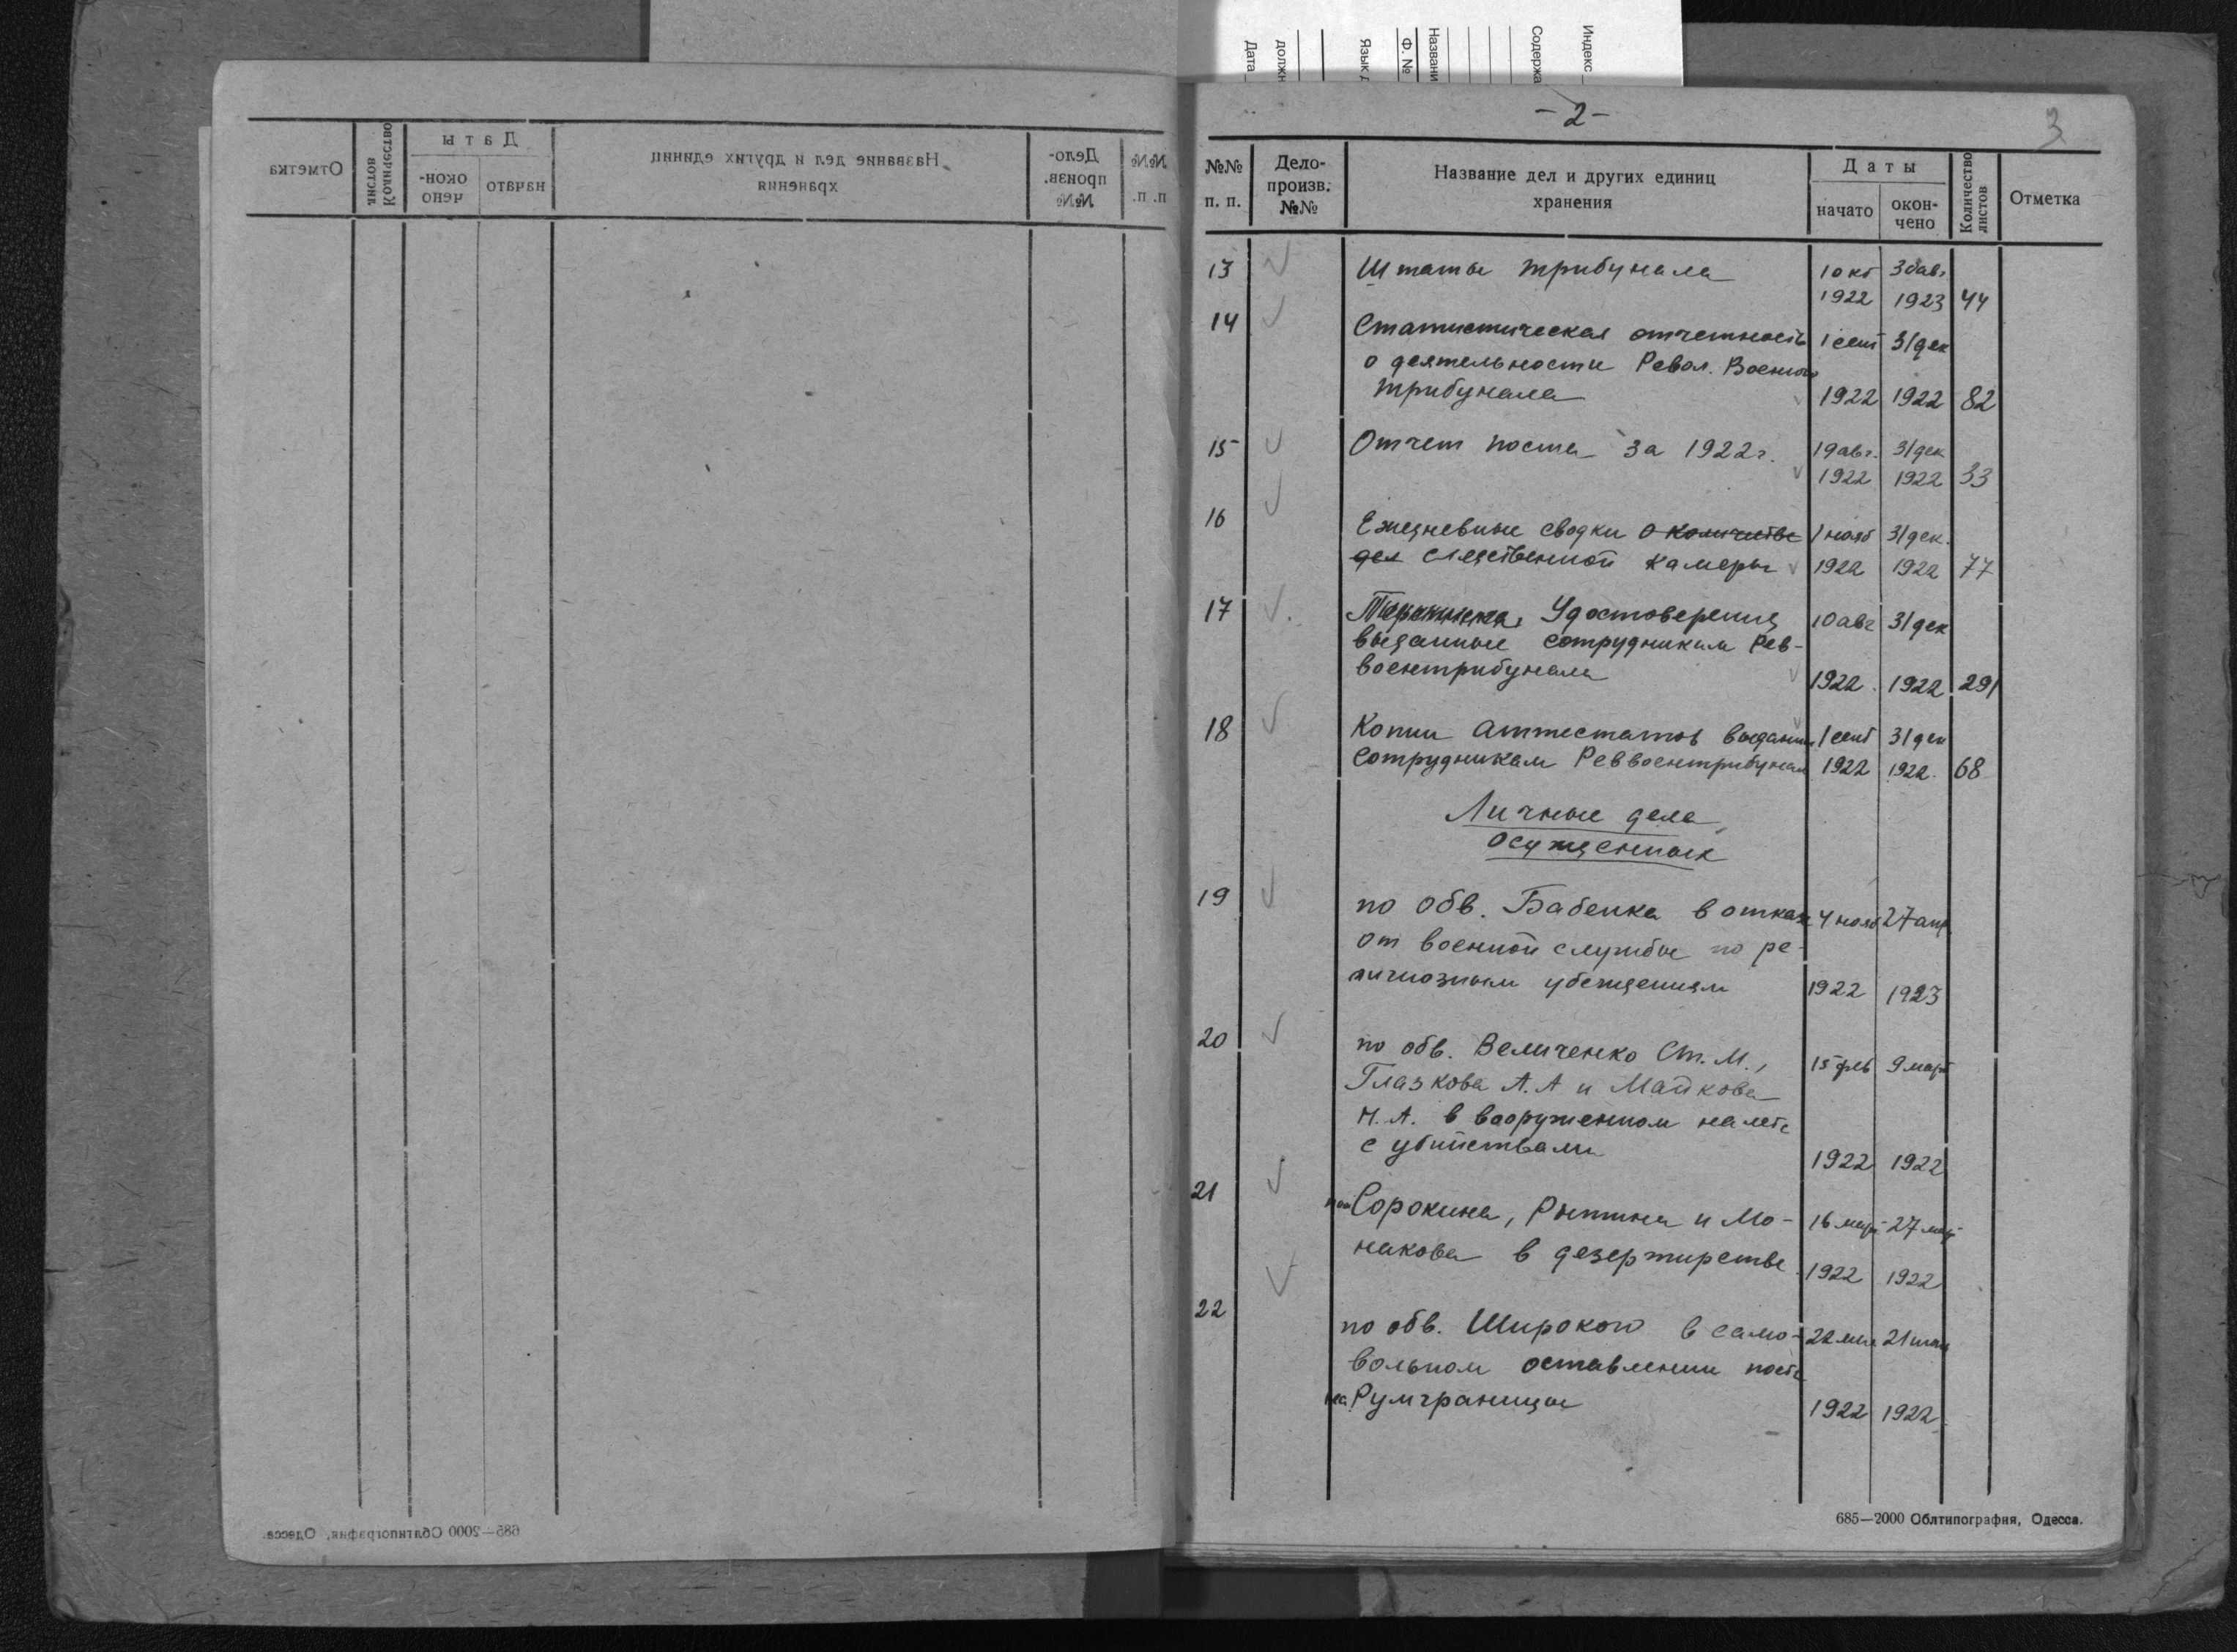 Индекс
Содержа
Названи
Ф. №
Язык д
должн
Дата
- 2 -
3
№№ п. п.
Дело-произв. №№
Название дел и других единиц хранения
Даты
начато
окон-чено
Количество листов
Отметка
13 Штаты трибунала 1 окт 1922 30 авг. 1923 44
14 Статистическая отчетность 1 сент 31 дек
о деятельностиРевол. Военного
трибунала 1922 1922 82
15 Отчет поста за 1922 г. 19 авг. 31 дек
1922 1922 33
16 Ежедневные сводки о количестве 1 нояб 31 дек.
дел следственной камеры 1922 1922 77
17 Удостоверения 10 авг 31 дек
выданные сотрудникам Рев-
военстрибунала 1922 1922 291
18 Копии аттестатов выданных 1 сент 31 дек
сотрудникам Реввоентрибунала 1922 1922. 68
Личные дела
осужденных
19 по обв. Бабенка в отказе 4 нояб 27 апр
от военной службы по ре-
лигиозным убеждениям 1922 1923
20 по обв. Величенко Ст. М., 15 фев 9 март
Глазкова А. А и Майкова
Н. А. в вооруженном налете
с убийствами 1922 1922
21 Сорокина, Рыттна и Мо- 16 март 27
накова в дезертирстве 1922 1922
22
по обв. Широкого в само- 22 21
вольном оставлении поста
на Румгранице 1922 1922
685—2000 Облтипография, Одесса.